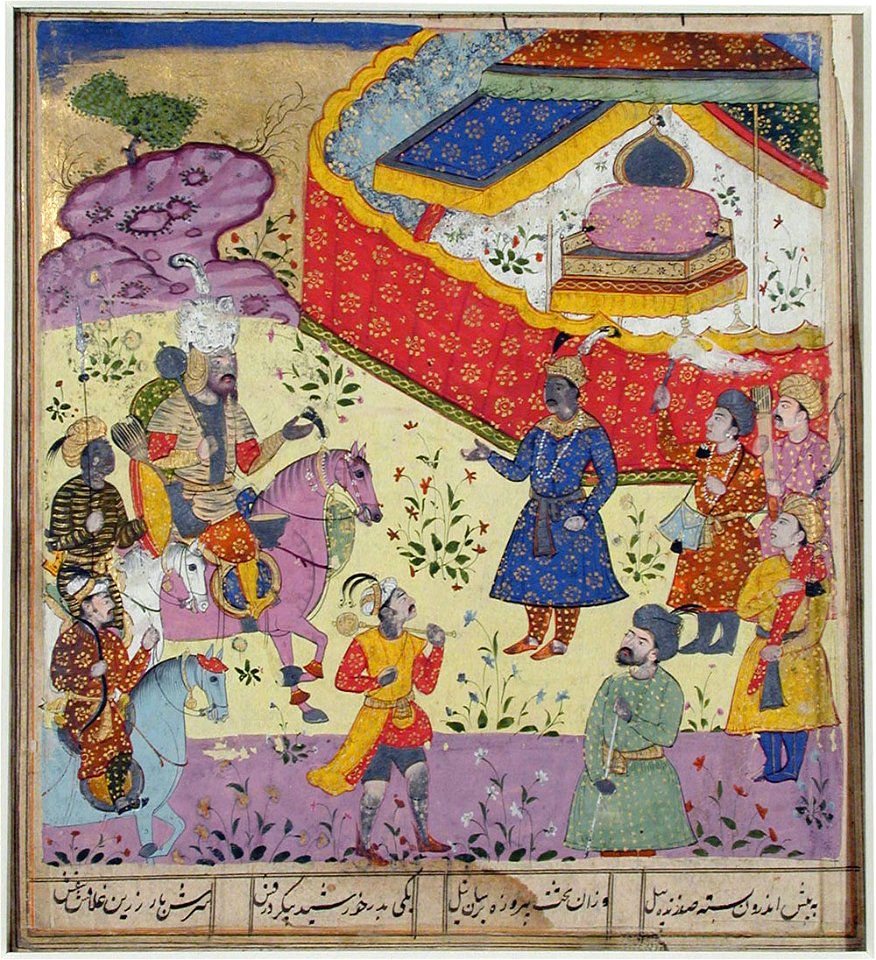 به پیش اندرون بسته صد ژنده پیل
وزان تخت پیروزه برسان نیل
یکی بدر خورشید پیکر درفش
سرش زرین غلافش بنفش